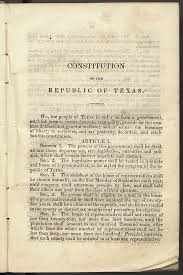 CONSTITUTION
OF THE
REPUBLIC OF TEXAS.
WE, the people of Texas in order to form a government,
establish justice, ensure domestic tranquility, provide for the com-
mon defence and general welfare; and to secure the blessings
of liberty to ourselves, and our posterity, do ordain and establish
this constitution.
ARTICLE I.
SECTION 1. The powers of this government shall be divid-
ed into three departments, viz: legislative, executive and judi-
cial, which shall remain forever separate and distinct.
SEC. 2. The legislative power shall be vested in a senate
and house of representatives, to be styled the congress of the re-
public of Texas.
SEC. 3. The members of the house of representatives shall be
chosen annually, on the first Monday of September each year,
until congress shall otherwise provide by law, and shall hold
their offices one year from the date of their election.
SEC. 4. No person shall be eligible to a seat in the house
of representatives until he shall have attained the age of
SEC. 5. The house of representatives shall not consist of
less than twenty-four, nor more than forty members, until the
population shall amount to one hundred thousand souls, after
which time the whole number of representatives shall not be less
than forty, nor more than one hundred: Provided, however,
that each county shall be entitled to at least one representative.